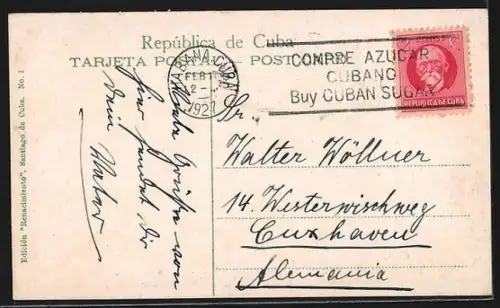 República de Cuba
TARJETA POSTAL — POST CARD
HABANA, CUBA
FEB 1
2 -
1927
COMPRE AZUCAR
CUBANO
Buy CUBAN SUGAR
REPUBLICA DE CUBA
Sr.
Walter Wöllner
14. Westerwischweg
Cuxhaven
Alemania
Grüße von
hier sendet Dir
Dein Vater
Edición "Renacimiento". Santiago de Cuba. No. 1